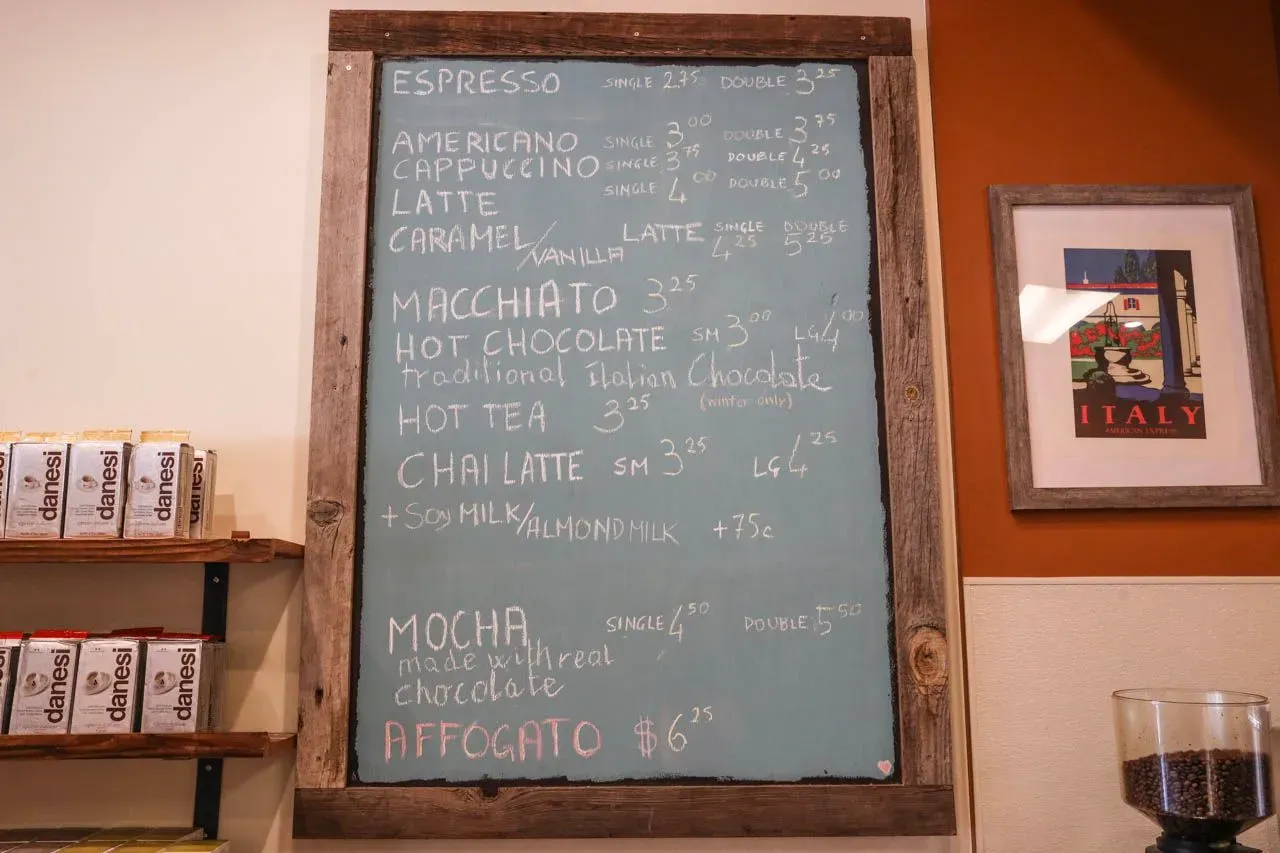 ESPRESSO SINGLE 2.75 DOUBLE 3 25
AMERICANO SINGLE 3 00 DOUBLE 3 75
CAPPUCCINO SINGLE 3 75 DOUBLE 4 25
LATTE SINGLE 4 00 DOUBLE 5 00
CARAMEL/VANILLA LATTE SINGLE 4 25 DOUBLE 5 25
MACCHIATO 3 25
HOT CHOCOLATE SM 3 00 LG 4 00
traditional Italian Chocolate
(winter only)
HOT TEA 3 25
CHAI LATTE SM 3 25 LG 4 25
+ Soy MILK/ALMOND MILK +75c
MOCHA SINGLE 4 50 DOUBLE 5 50
made with real
chocolate
AFFOGATO $6 25
danesi
danesi
danesi
danesi
danesi
danesi
danesi
ITALY
AMERICAN EXPRESS